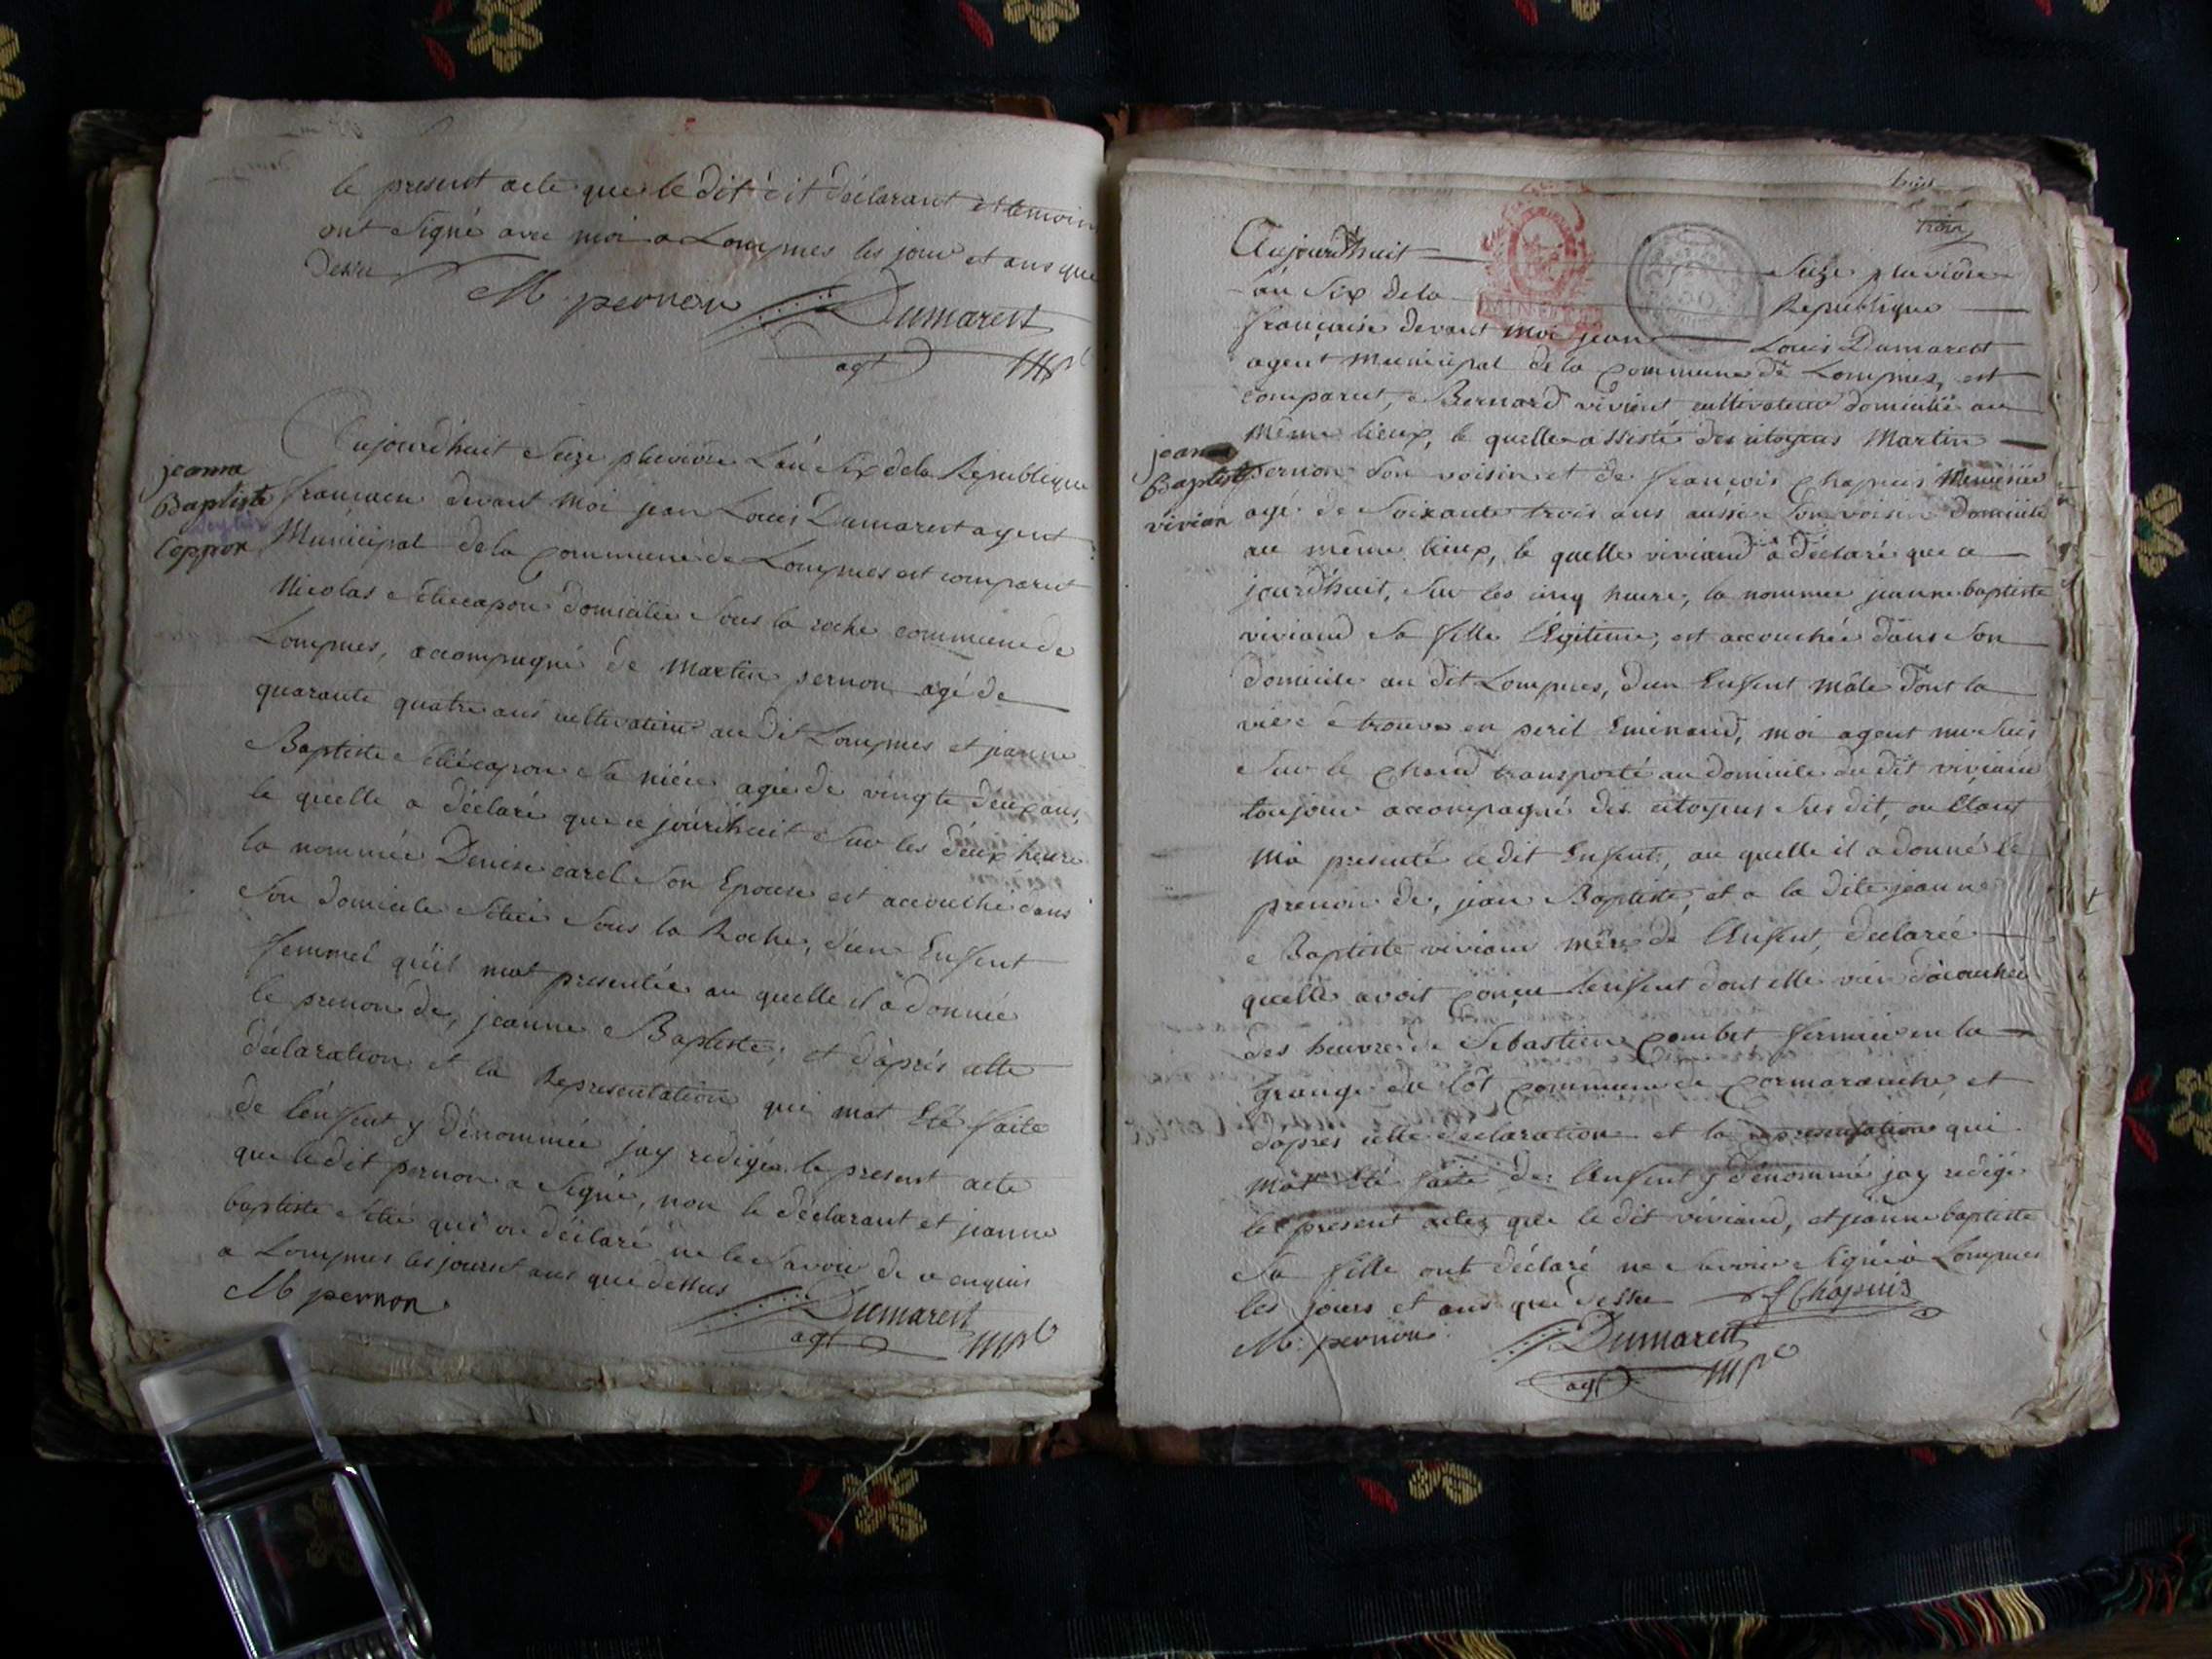 le present acte que le dit cit déclarant et temoin
ont Signé avec moi a Lompnes les jour et ans que
Dessu
M pernon Dumarest
agt mpl
jeanne
Baptiste
Aujourdhuit Seize pluviose L'an Six dela Republique
francaise devant Moi jean Louis Dumarest agent
Municipal dela Commune de Lompnes est comparut
Nicolas domicilié Sous la roche commune de
Lompnes, accompagné de Martin pernon agé de
quarante quatre ans cultivateur au dit Lompnes et jeanne
Baptiste Sa niéce agée de vingte deux ans,
le quelle a déclaré que ce jourdhuit Sur les deux heure
la nommée Denise carel Son Epouse est accouché dans
Son domicile Situé Sous la Roche, d'un Enfent
femmel qu'il mat presentée au quelle il a donnée
le prenon de, jeanne Baptiste; et d'aprés cette
déclaration et la Representation qui mat Eté faite
de l'enffent y dénommée jay redigée le present acte
que le dit pernon a Signé, non le déclarant et jeanne
baptiste qui on déclaré ne le Savoir de ce enquis
a Lompnes les jours et ans que dessus
M pernon Dumarest
agt mpl
trois
Aujourdhuit Seize pluviose
l'an Six dela Republique
française devant Moi jean Louis Dumarest
agent Municipal dela Commune de Lompnes, est
comparut, Bernard vivient cultivateur domicilié au
Même lieux, le quelle assisté des citoyens Martin
jeanne
Baptiste
vivian
pernon Son voisin et de françois Chapuis Menusier
agé de Soixante trois ans aussi Son voisin Domicilié
au même lieux, le quelle viviand a déclaré que ce
jourdhuit, Sur les cinq heure, la nommée jeanne baptiste
viviand Sa fille légitime, est accouchée dans Son
domicile au dit Lompnes, d'un Enffent Mâle dont la
vie Se trouve en peril Eminand, moi agent me Suis
Sur le Chand transporté au domicile du dit viviand
toujour accompagné des citoyens Sus dit, ou Etant
Mà presenté le dit Enffent, au quelle il a donné le
prenon de, jean Baptiste, et a la dite jeanne
Baptiste viviand mêre de l'Enffent, declarée
quelle avoit Conçu lenffent dont elle vien d'acouchée
des heuvre de Sebastien Combet fermier en la
Grange de lôt Commune de Cormaranche, et
dapres cette déclaration et la representation qui
Mat Eté faite de l'Enffent y dénommé jay redigé
le present acte que le dit viviand, et jeanne baptiste
Sa fille ont déclaré ne Savoir Signé a Lompnes
les jours et ans que dessu f Chapuis
M. pernon Dumarest
agt mpl